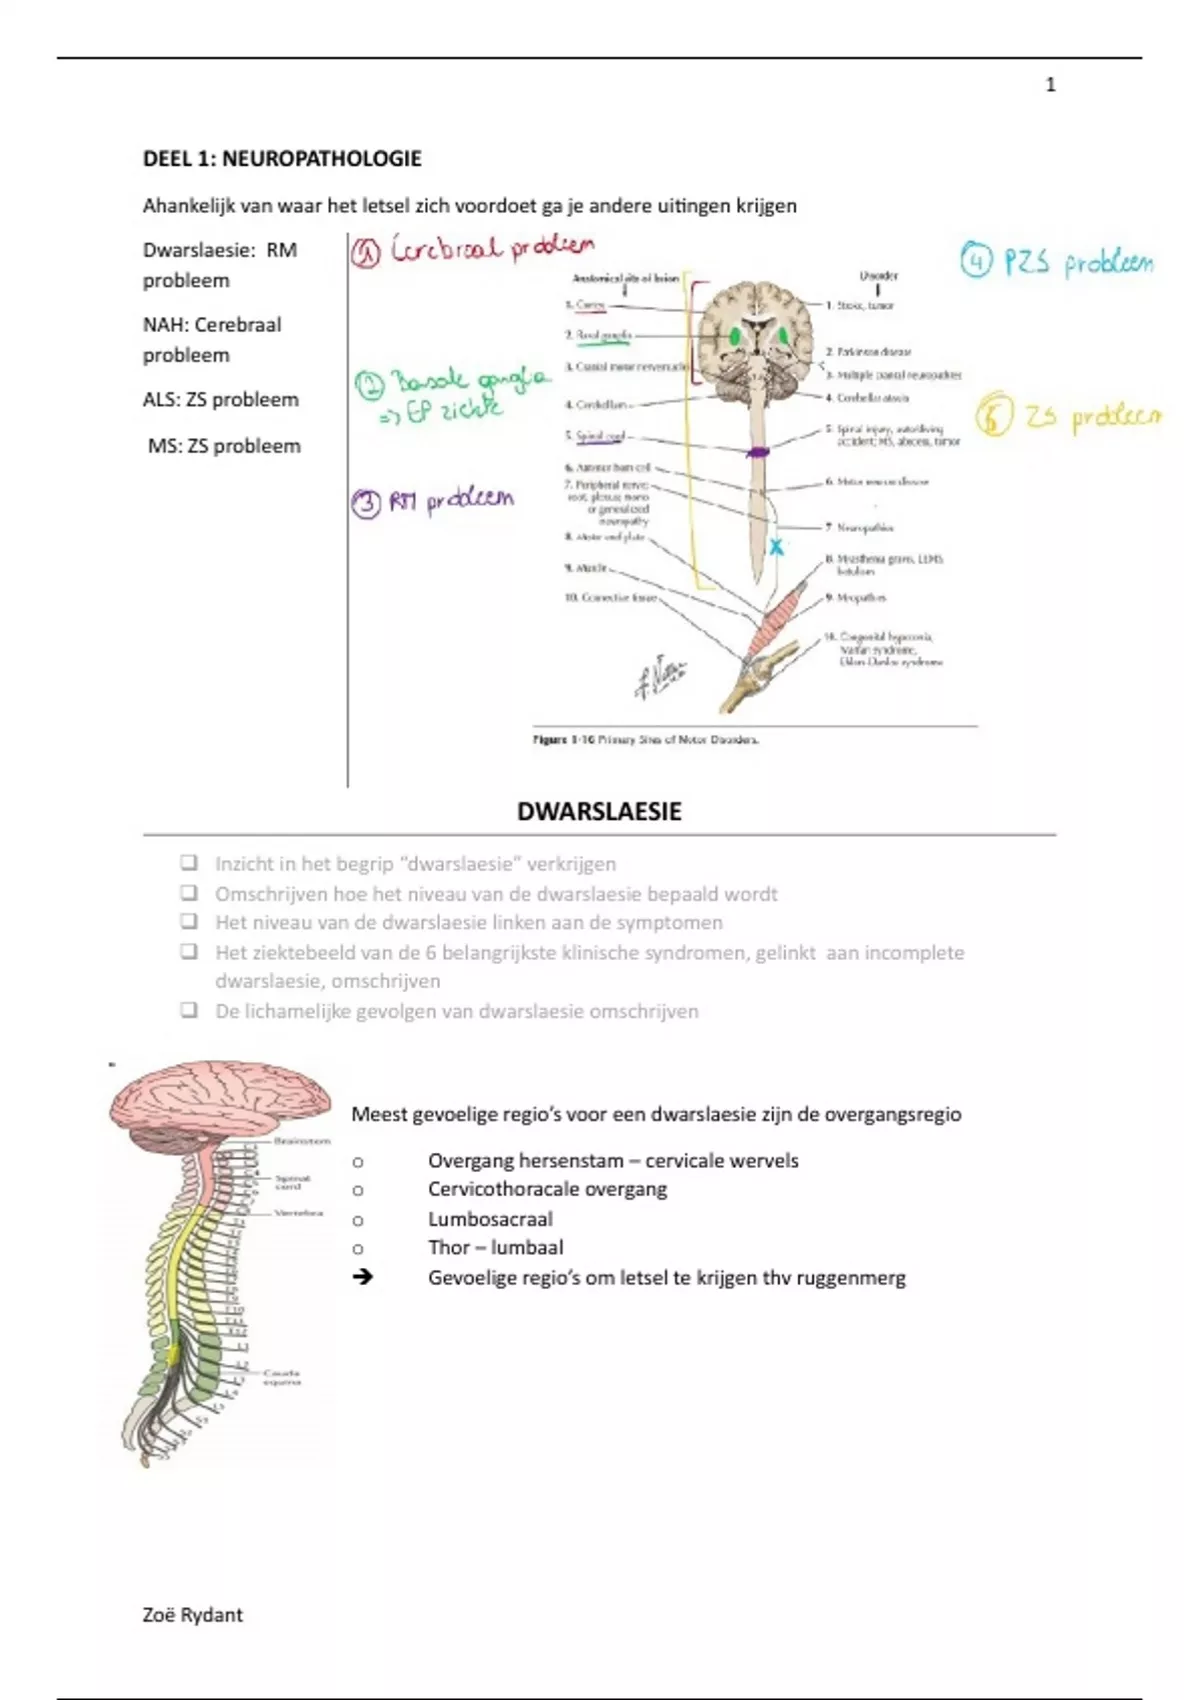 1
DEEL 1: NEUROPATHOLOGIE
Ahankelijk van waar het letsel zich voordoet ga je andere uitingen krijgen
Dwarslaesie: RM
probleem
NAH: Cerebraal
probleem
ALS: ZS probleem
MS: ZS probleem
① Cerebraal probleem
② Basale ganglia
=> EP ziekte
③ RM probleem
④ PZS probleem
⑤ ZS probleem
Anatomical site of lesion
1. Cortex
2. Basal ganglia
3. Cranial motor nerve nuclei
4. Cerebellum
5. Spinal cord
6. Anterior horn cell
7. Peripheral nerve;
root, plexus; mono
or generalized
neuropathy
8. Motor end plate
9. Muscle
10. Connective tissue
Disorder
1. Stroke, tumor
2. Parkinson disease
3. Multiple cranial neuropathies
4. Cerebellar ataxia
5. Spinal injury, auto/diving
accident; MS, abscess, tumor
6. Motor neuron disease
7. Neuropathies
8. Myasthenia gravis, LEMS,
botulism
9. Myopathies
10. Congenital hypotonia,
Marfan syndrome,
Ehlers-Danlos syndrome
Figure 1-16 Primary Sites of Motor Disorders.
DWARSLAESIE
❑ Inzicht in het begrip “dwarslaesie” verkrijgen
❑ Omschrijven hoe het niveau van de dwarslaesie bepaald wordt
❑ Het niveau van de dwarslaesie linken aan de symptomen
❑ Het ziektebeeld van de 6 belangrijkste klinische syndromen, gelinkt aan incomplete
dwarslaesie, omschrijven
❑ De lichamelijke gevolgen van dwarslaesie omschrijven
Brainstem
Spinal
cord
Vertebra
Cauda
equina
Meest gevoelige regio’s voor een dwarslaesie zijn de overgangsregio
o Overgang hersenstam – cervicale wervels
o Cervicothoracale overgang
o Lumbosacraal
o Thor – lumbaal
➔ Gevoelige regio’s om letsel te krijgen thv ruggenmerg
Zoë Rydant